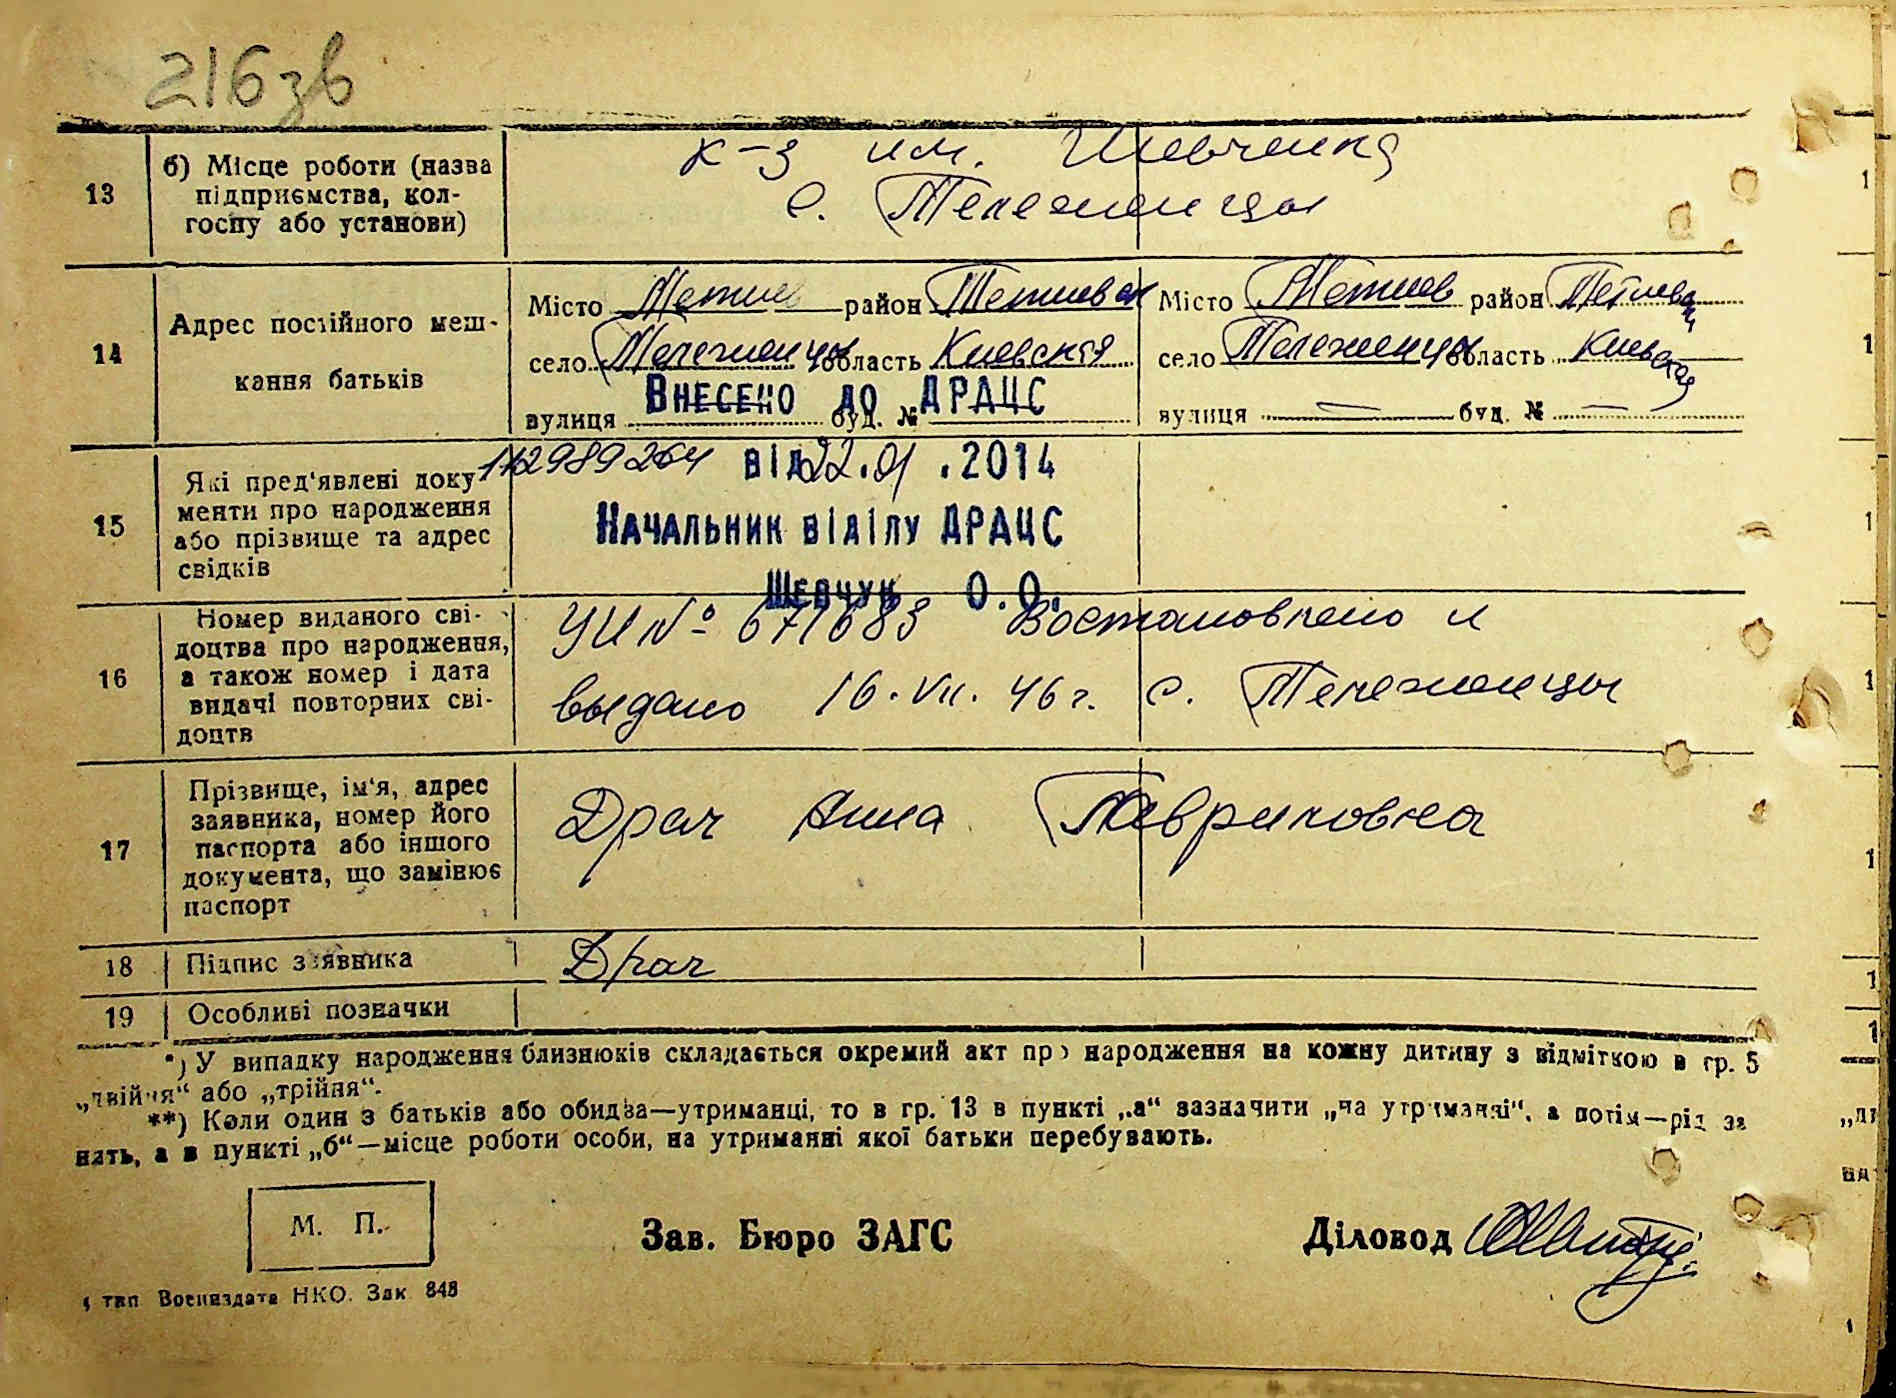 216зв
13 б) Місце роботи (назва підприємства, кол-
госпу або установи)
к-з им. Шевченка
с. Тележенцы
14 Адрес постійного меш-
кання батьків
Місто Тетиев район Тетиевск Місто Тетиев район Тетиевск
село Тележенцы область Киевская село Тележенцы область Киевская
вулиця буд. № вулиця — буд. № —
Внесено до ДРАЦС
112989264 від 22.01.2014
Начальник відділу ДРАЦС
Шевчук О.О.
15 Які пред'явлені доку-
менти про народження
або прізвище та адрес
свідків
16 Номер виданого сві-
доцтва про народження,
а також номер і дата
видачі повторних сві-
доцтв
УИ № 671683 Востановлено и
выдано 16.VII.46 г. с. Тележенцы
17 Прізвище, ім'я, адрес
заявника, номер його
паспорта або іншого
документа, що замінює
паспорт
Драч Анна Гавриловна
18 Підпис заявника Драч
19 Особливі позначки
*) У випадку народження близнюків складається окремий акт про народження на кожну дитину з відміткою в гр. 5
„двійня“ або „трійня“.
**) Коли один з батьків або обидва—утриманці, то в гр. 13 в пункті „а“ зазначити „на утриманні“, а потім—рід за
нять, а в пункті „б“—місце роботи особи, на утриманні якої батьки перебувають.
М. П. Зав. Бюро ЗАГС Діловод
тип Воениздата НКО. Зак 848